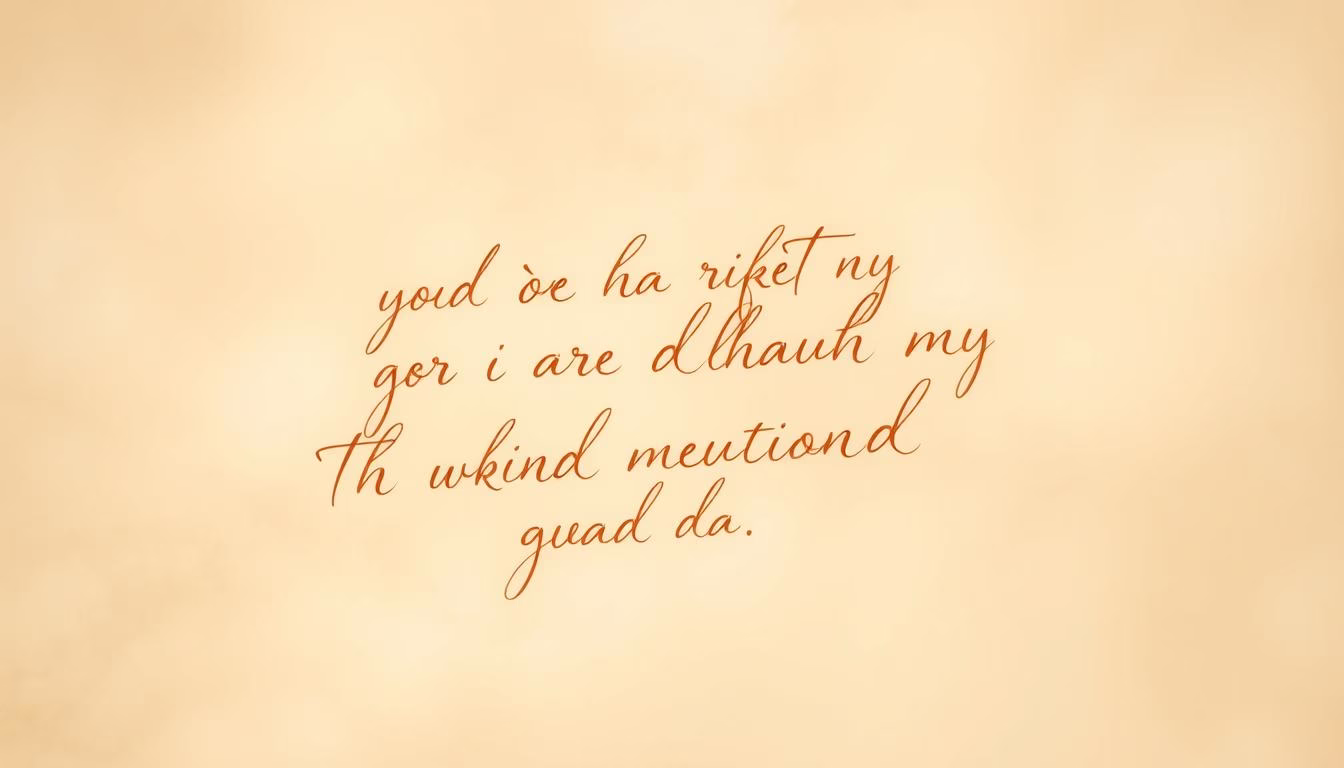 yoıd òe ha rifket ny
gor i are dlhauh my
Th wkind meutiond
guad da.